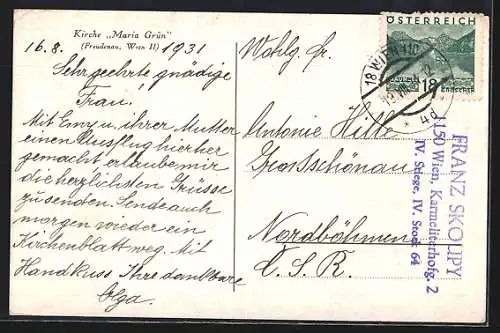 Kirche „Maria Grün"
(Freudenau, Wien II)
16.8. 1931
Sehrgeehrte gnädige
Frau!
Mit Emy u. ihrer Mutter
einen Ausflug hierher
gemacht erlaube mir
die herzlichsten Grüsse
zu senden. Sende auch
morgen wieder ein
Kirchenblatt weg. Mit
Handkuss Ihre dankbare
Olga.
Wohlg. Fr.
Antonie Hille
Grosschönau
Nordböhmen
C. S. R.
ÖSTERREICH
18
GROSCHEN
18 WIEN 110
FRANZ SKOLIPY
1150 Wien, Karmeliterhofg. 2
IV. Stiege, IV. Stock 64